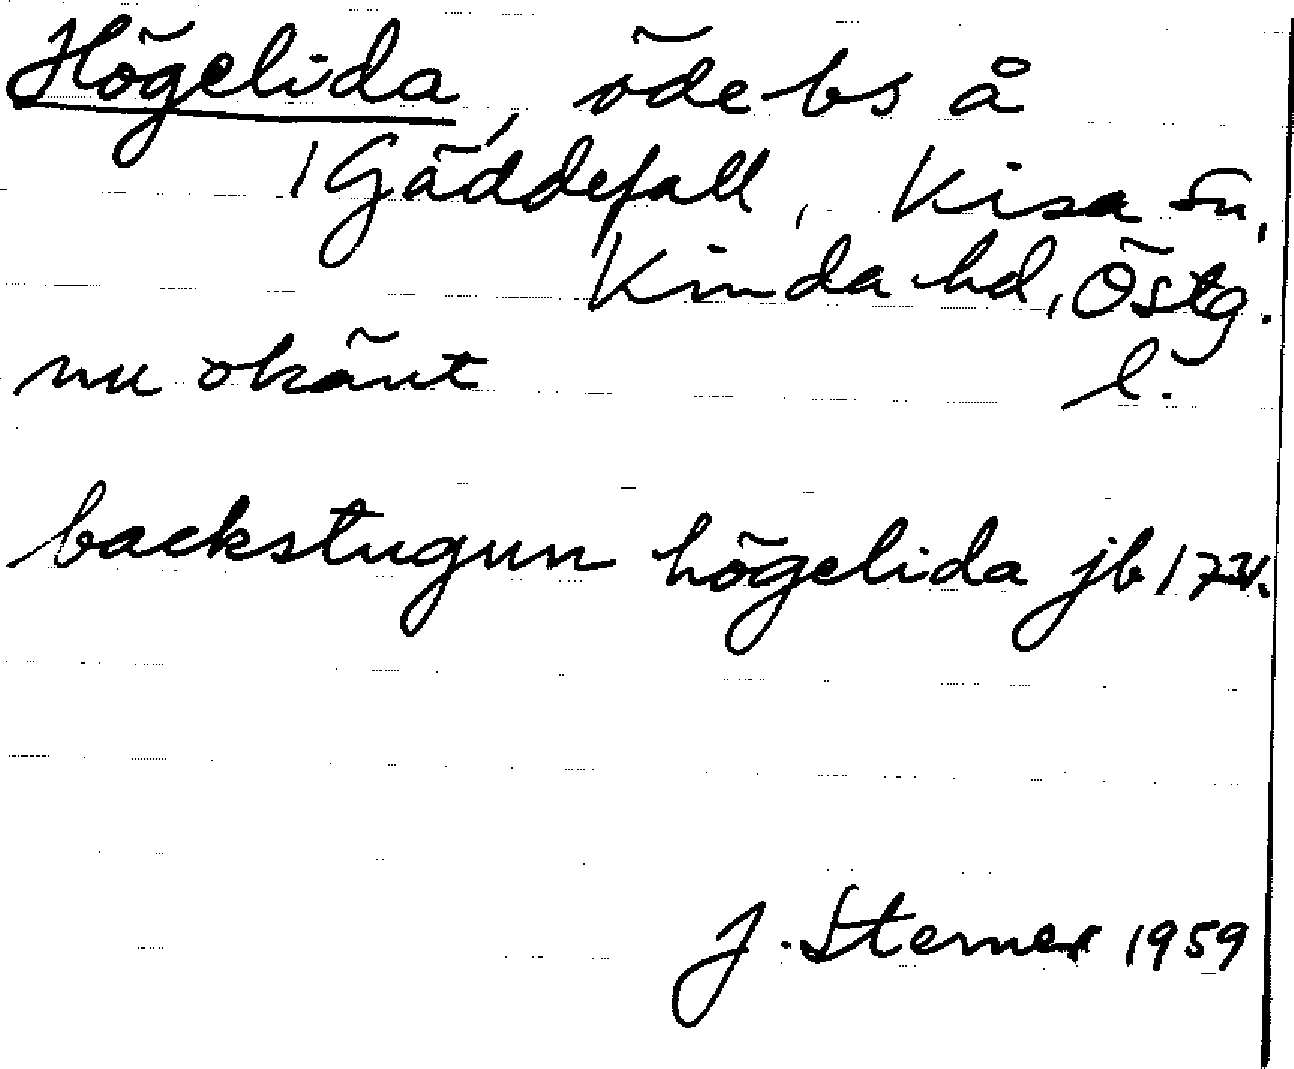 Högelida, öde bs å
1 Gäddefall, Kisa sn,
Kinda hd, Östg.
nu okänt l.
backstugun högelida jb
J. Sterner 1959